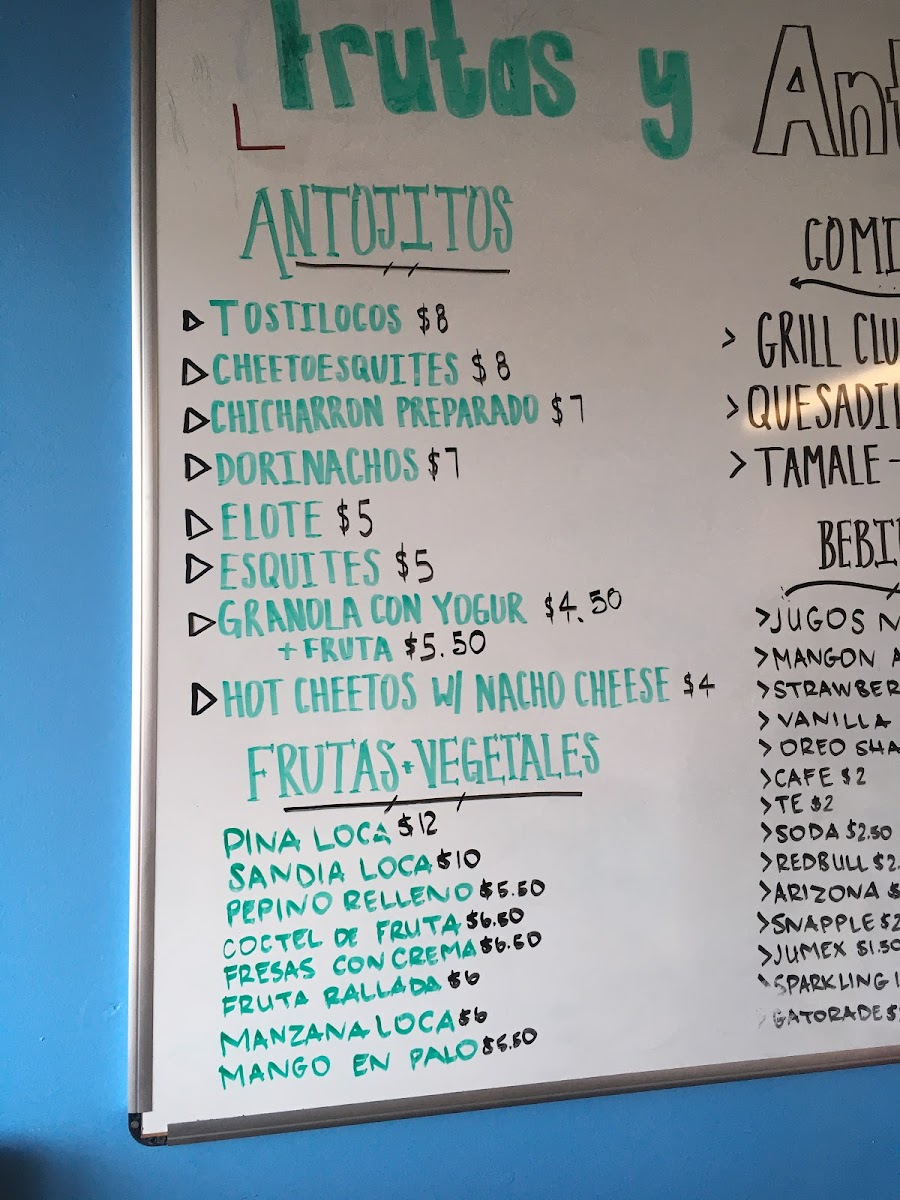 Frutas y Ant
ANTOJITOS
TOSTILOCOS $8
CHEETOESQUITES $8
CHICHARRON PREPARADO $7
DORINACHOS $7
ELOTE $5
ESQUITES $5
GRANOLA CON YOGUR $4.50
+ FRUTA $5.50
HOT CHEETOS W/ NACHO CHEESE $4
FRUTAS + VEGETALES
PINA LOCA $12
SANDIA LOCA $10
PEPINO RELLENO $5.50
COCTEL DE FRUTA $6.50
FRESAS CON CREMA $6.50
FRUTA RALLADA $6
MANZANA LOCA $6
MANGO EN PALO $5.50
COMI
> GRILL CLU
> QUESADIL
> TAMALE -
BEBI
> JUGOS N
> MANGON A
> STRAWBER
> VANILLA
> OREO SHA
> CAFE $2
> TE $2
> SODA $2.50
> REDBULL $2.
> ARIZONA $
> SNAPPLE $2
> JUMEX $1.50
SPARKLING
> GATORADE $